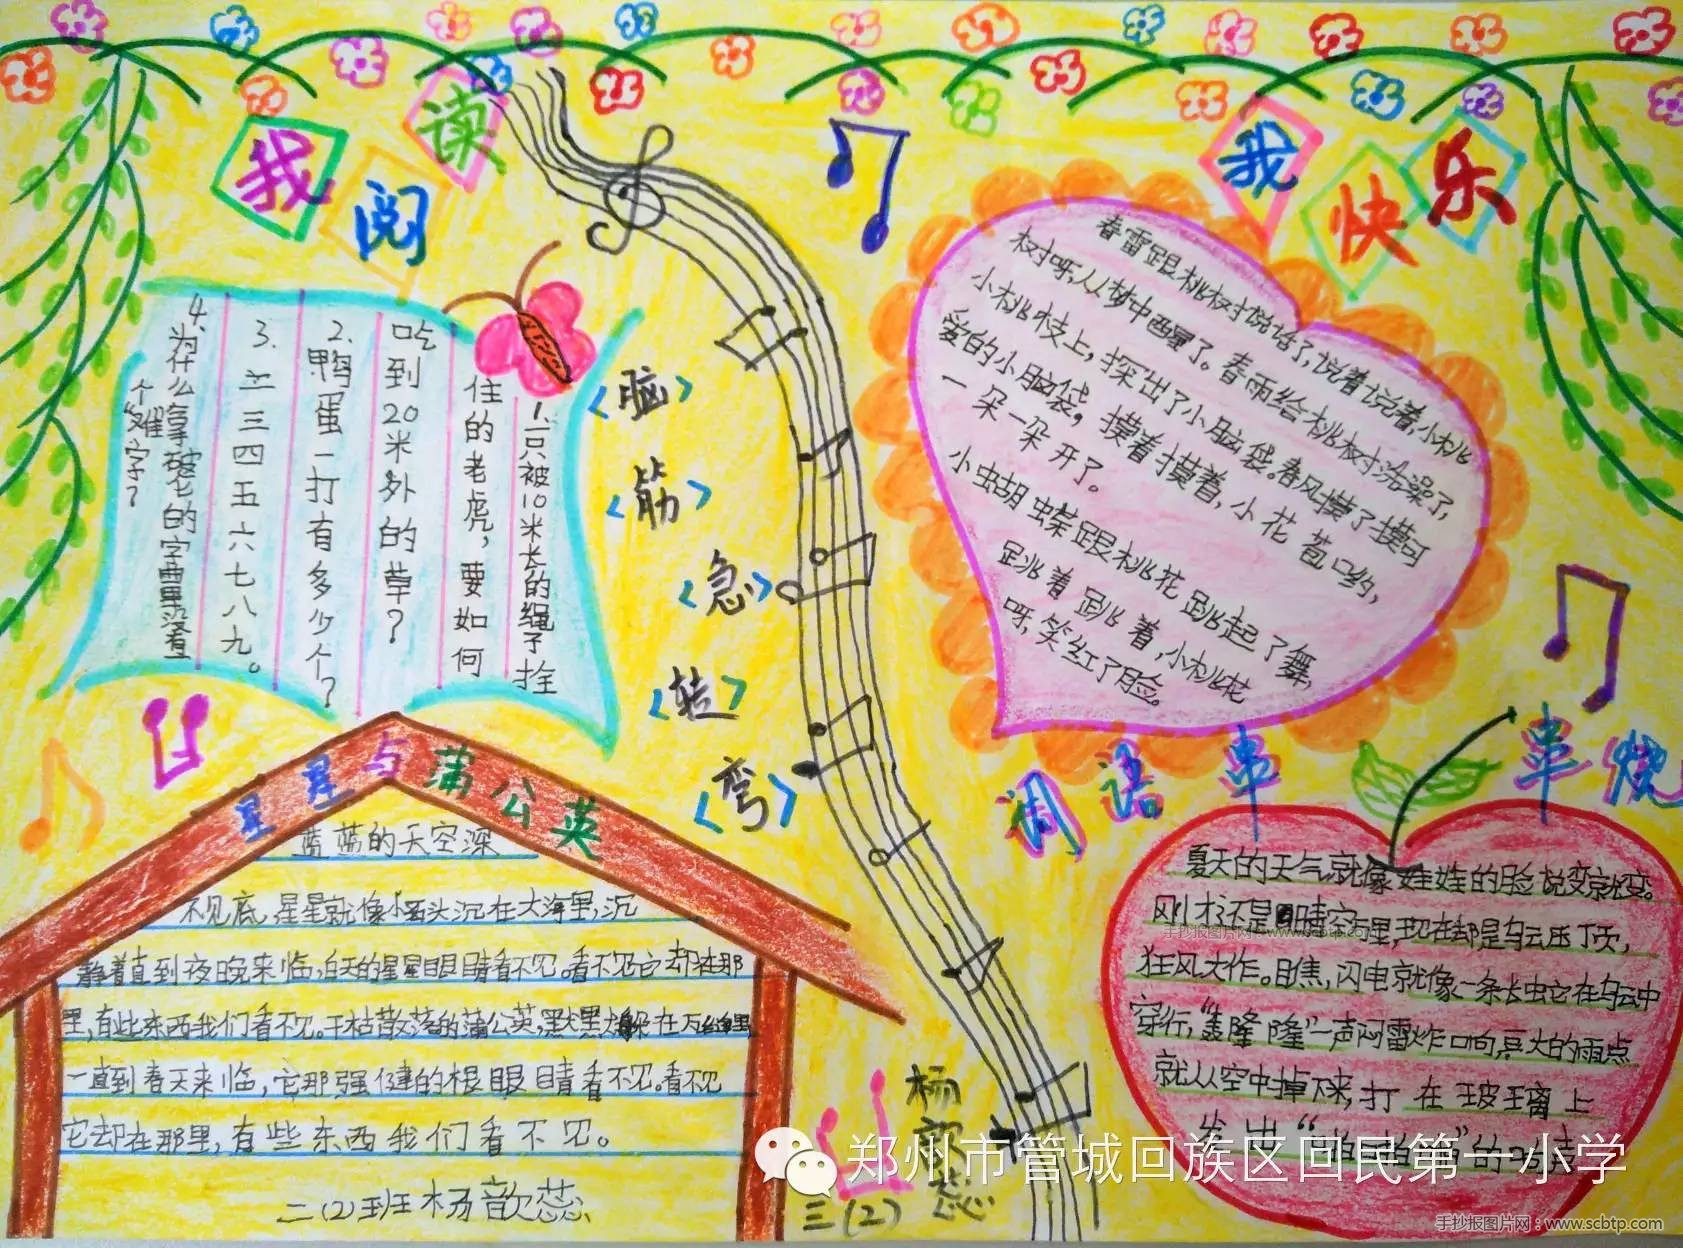 我
阅
读
我
快
乐
1.一只被10米长的绳子拴
住的老虎，要如何
吃到20米外的草？
2.鸭蛋一打有多少个？
3.二三四五六七八九。
4.为什么拿破仑的字里没有
个“难”字？
<脑>
<筋>
<急>
<转>
<弯>
春雷跟桃树说话了，说着说着，小桃
树呀，从梦中西醒了。春雨给桃树洗澡了，
小桃枝上，探出了小脑袋。春风摸了摸可
爱的小脑袋，摸着摸着，小花苞口约，
一朵一朵开了。
小虫胡蝶跟桃花跳起了舞，
跳着跳着，小桃花
呀，笑红了脸。
星星与蒲公英
蓝蓝的天空深
不见底，星星就像小石头沉在大海里，沉
静着直到夜晚来临，白天的星星眼睛看不见。看不见它却在那
里，有些东西我们看不见。干枯散落的蒲公英，默默躲在瓦缝里，
一直到春天来临，它那强健的根眼睛看不见。看不见
它却在那里，有些东西我们看不见。
二(2)班杨歆蕊
词语串串烧
夏天的天气就像娃娃的脸说变就变。
刚才还是晴空万里，现在却是乌云压顶，
狂风大作。目焦，闪电就像一条长虫它在乌云中
穿行，“轰隆隆”一声闷雷炸响，豆大的雨点
就从空中掉下来，打在玻璃上
发出“啪啪”的响声
杨歆蕊
三(2)
郑州市管城回族区回民第一小学
手抄报图片网：www.scbtp.com